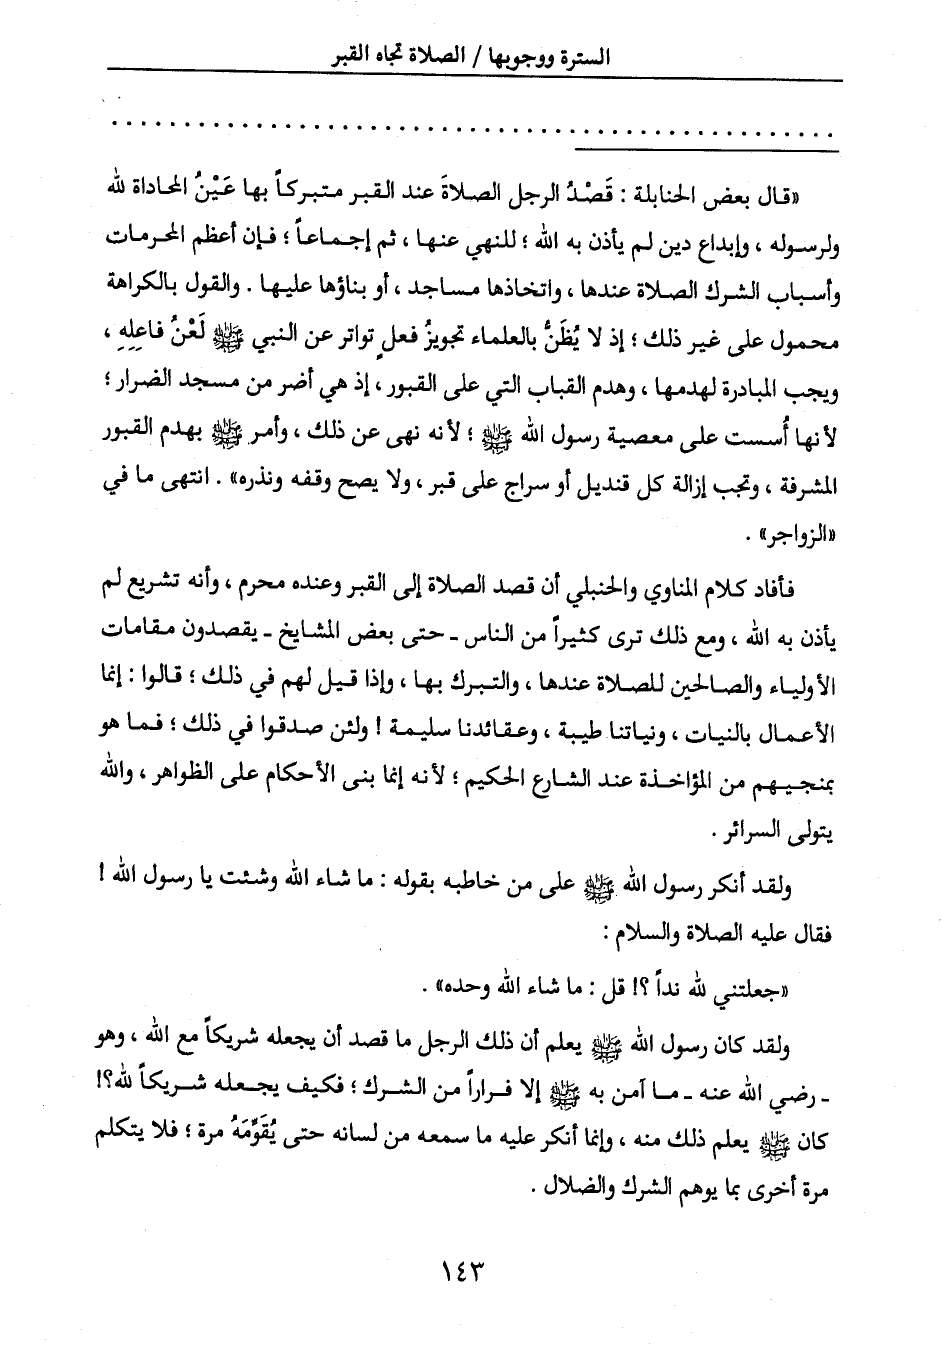 السترة ووجوبها / الصلاة تجاه القبر
................................................
«قال بعض الحنابلة : قَصْدُ الرجل الصلاةَ عند القبر متبركاً بها عَيْنُ المحاداة لله
ولرسوله ، وإبداع دين لم يأذن به الله ؛ للنهي عنها ، ثم إجماعاً ؛ فإن أعظم المحرمات
وأسباب الشرك الصلاة عندها ، واتخاذها مساجد ، أو بناؤها عليها . والقول بالكراهة
محمول على غير ذلك ؛ إذ لا يُظَنُّ بالعلماء تجويزُ فعلٍ تواتر عن النبي ﷺ لَعْنُ فاعلِهِ ،
ويجب المبادرة لهدمها ، وهدم القباب التي على القبور ، إذ هي أضر من مسجد الضرار ؛
لأنها أُسست على معصية رسول الله ﷺ ؛ لأنه نهى عن ذلك ، وأمر ﷺ بهدم القبور
المشرفة ، وتجب إزالة كل قنديل أو سراج على قبر ، ولا يصح وقفه ونذره» . انتهى ما في
«الزواجر» .
فأفاد كلام المناوي والحنبلي أن قصد الصلاة إلى القبر وعنده محرم ، وأنه تشريع لم
يأذن به الله ، ومع ذلك ترى كثيراً من الناس ـ حتى بعض المشايخ ـ يقصدون مقامات
الأولياء والصالحين للصلاة عندها ، والتبرك بها ، وإذا قيل لهم في ذلك ؛ قالوا : إنما
الأعمال بالنيات ، ونياتنا طيبة ، وعقائدنا سليمة ! ولئن صدقوا في ذلك ؛ فما هو
بمنجيهم من المؤاخذة عند الشارع الحكيم ؛ لأنه إنما بنى الأحكام على الظواهر ، والله
يتولى السرائر .
ولقد أنكر رسول الله ﷺ على من خاطبه بقوله : ما شاء الله وشئت يا رسول الله !
فقال عليه الصلاة والسلام :
«جعلتني لله نداً ؟! قل : ما شاء الله وحده» .
ولقد كان رسول الله ﷺ يعلم أن ذلك الرجل ما قصد أن يجعله شريكاً مع الله ، وهو
ـ رضي الله عنه ـ ما آمن به ﷺ إلا فراراً من الشرك ؛ فكيف يجعله شريكاً لله؟!
كان ﷺ يعلم ذلك منه ، وإنما أنكر عليه ما سمعه من لسانه حتى يُقَوِّمَهُ مرة ؛ فلا يتكلم
مرة أخرى بما يوهم الشرك والضلال .
١٤٣